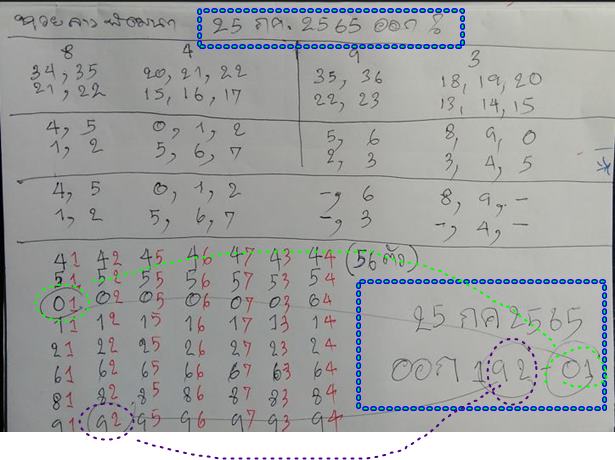 หวยลาวพัฒนา 25 กค. 2565 ออก
8 4 9 3
34, 35 20, 21, 22 35, 36 18, 19, 20
21, 22 15, 16, 17 22, 23 13, 14, 15
4, 5 0, 1, 2 5, 6 8, 9, 0
1, 2 5, 6, 7 2, 3 3, 4, 5
4, 5 0, 1, 2 -, 6 8, 9, -
1, 2 5, 6, 7 -, 3 -, 4, -
41 42 45 46 47 43 44 (56 ตัว)
51 52 55 56 57 53 54
01 02 05 06 07 03 04
11 12 15 16 17 13 14
21 22 25 26 27 23 24
61 62 65 66 67 63 64
81 82 85 86 87 83 84
91 92 95 96 97 93 94
25 กค 2565
ออก 192-01